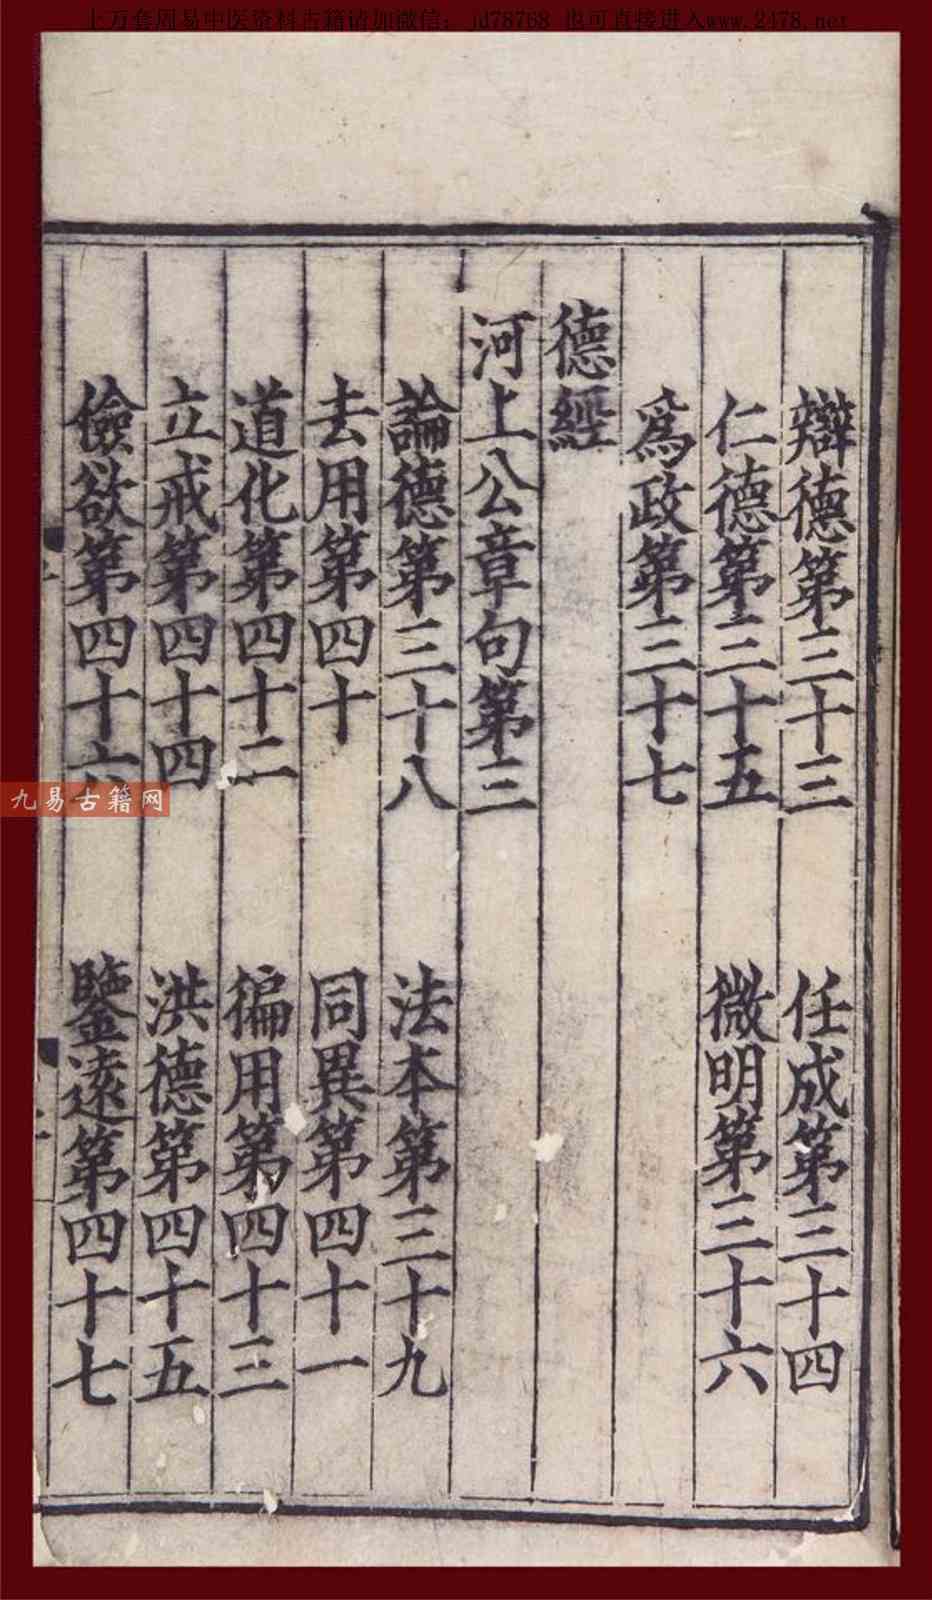 上万套周易中医资料古籍请加微信：jd78768 也可直接进入www.2478.net
辯德第三十三 任成第三十四
仁德第三十五 微明第三十六
為政第三十七
德經
河上公章句第三
論德第三十八 法本第三十九
去用第四十 同異第四十一
道化第四十二 徧用第四十三
立戒第四十四 洪德第四十五
儉欲第四十六 鑒遠第四十七
九易古籍网